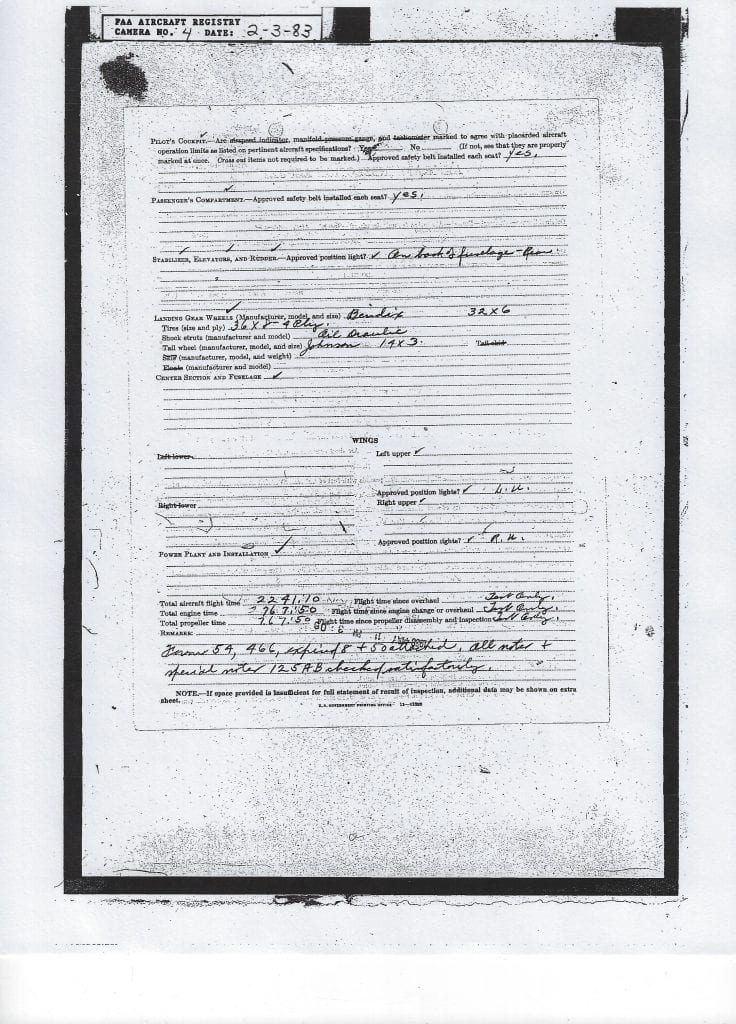 FAA AIRCRAFT REGISTRY
CAMERA NO. 4 DATE: 2-3-83
PILOT'S COCKPIT.—Are airspeed indicator, manifold pressure gauge, and tachometer marked to agree with placarded aircraft
operation limits as listed on pertinent aircraft specifications? Yes No (If not, see that they are properly
marked at once. Cross out items not required to be marked.) Approved safety belt installed each seat? yes.
PASSENGER'S COMPARTMENT.—Approved safety belt installed each seat? yes.
STABILIZER, ELEVATORS, AND RUDDER.—Approved position light? ✓ On back of fuselage - Rear.
LANDING GEAR WHEELS (Manufacturer, model, and size) Bendix 32 X 6
Tires (size and ply) 36 X 8 - 4 Ply.
Shock struts (manufacturer and model) Oil Draulic
Tail wheel (manufacturer, model, and size) Johnson 14 X 3. Tail skid
Skis (manufacturer, model, and weight)
Floats (manufacturer and model)
CENTER SECTION AND FUSELAGE ✓
WINGS
Left lower
Left upper ✓
Approved position lights? ✓ L.H.
Right lower
Right upper ✓
Approved position lights? ✓ R.H.
POWER PLANT AND INSTALLATION ✓
Total aircraft flight time 2241:10 Flight time since overhaul Test Only.
Total engine time 2767:50 Flight time since engine change or overhaul Test Only.
Total propeller time 767:50 Flight time since propeller disassembly and inspection Test Only.
REMARKS:
Forms 54, 466, expired 8 + 50 attached, all notes +
special notes 125 AB checked satisfactorily.
NOTE.—If space provided is insufficient for full statement of result of inspection, additional data may be shown on extra
sheet.
U.S. GOVERNMENT PRINTING OFFICE